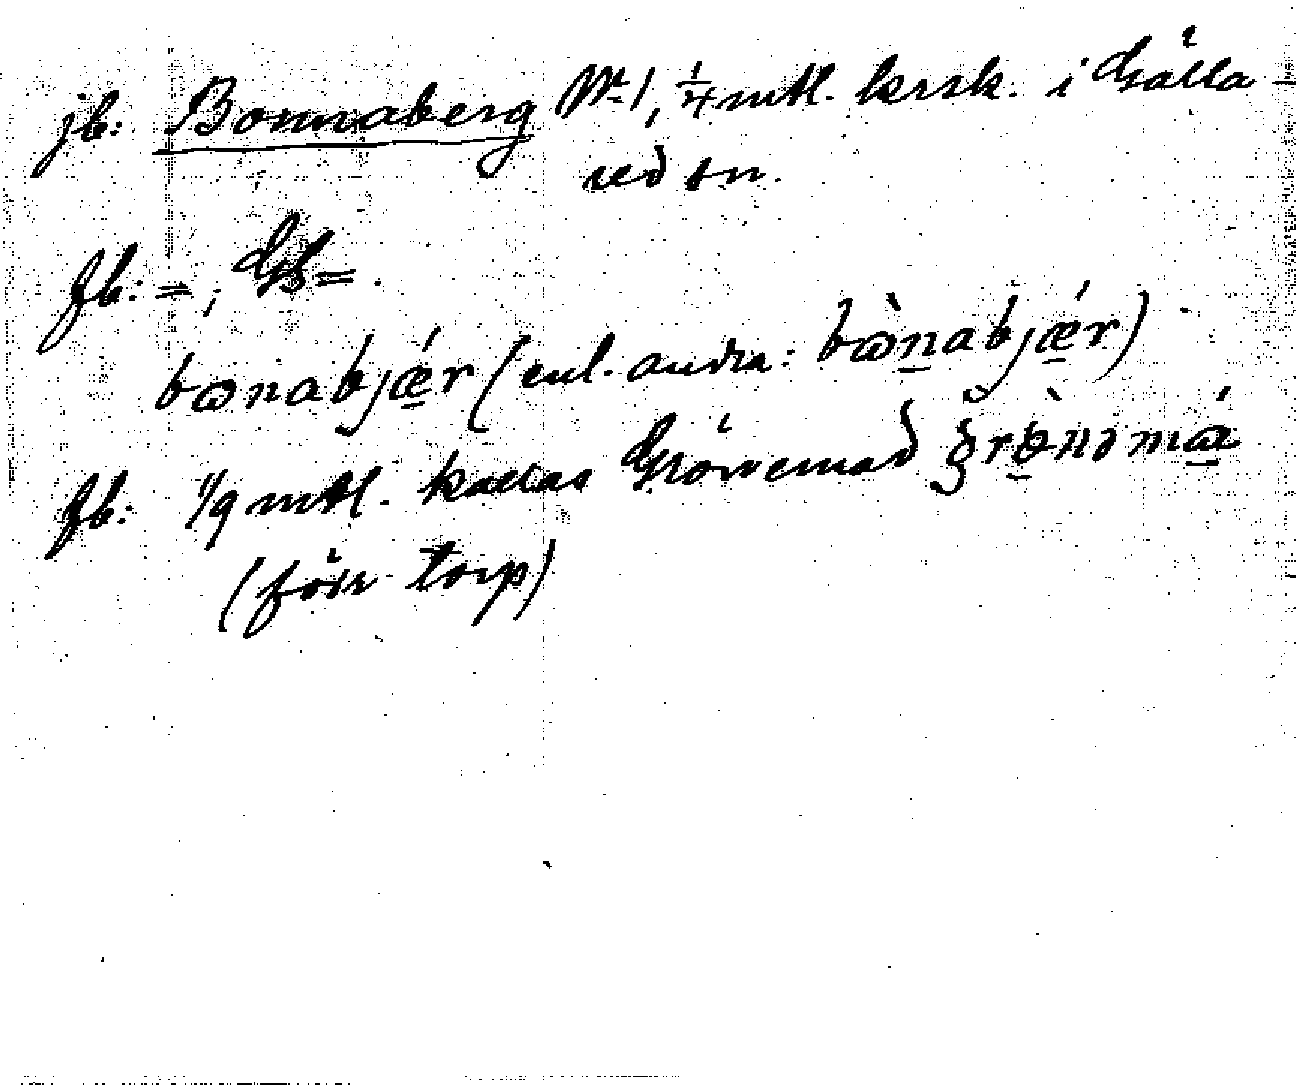 jb: Bonnaberg Nr 1, 1/4 mtl. krsk. i Gälla-
red sn.
fb: =, GS =.
bɷnabjǽr (enl. andra: bɷ̀nabjǽr)
fb: 1/9 mtl. kallas Grönemad
(förr torp)